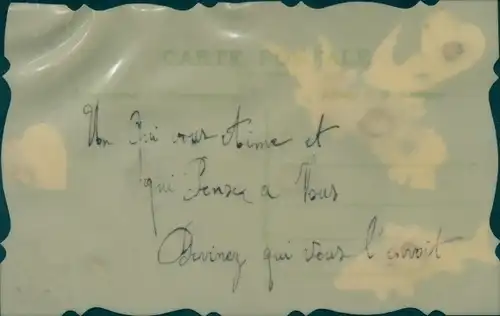 CARTE POSTALE
Un Qui vous Aime et
qui Pense a Vous
Devinez qui vous l'envoit